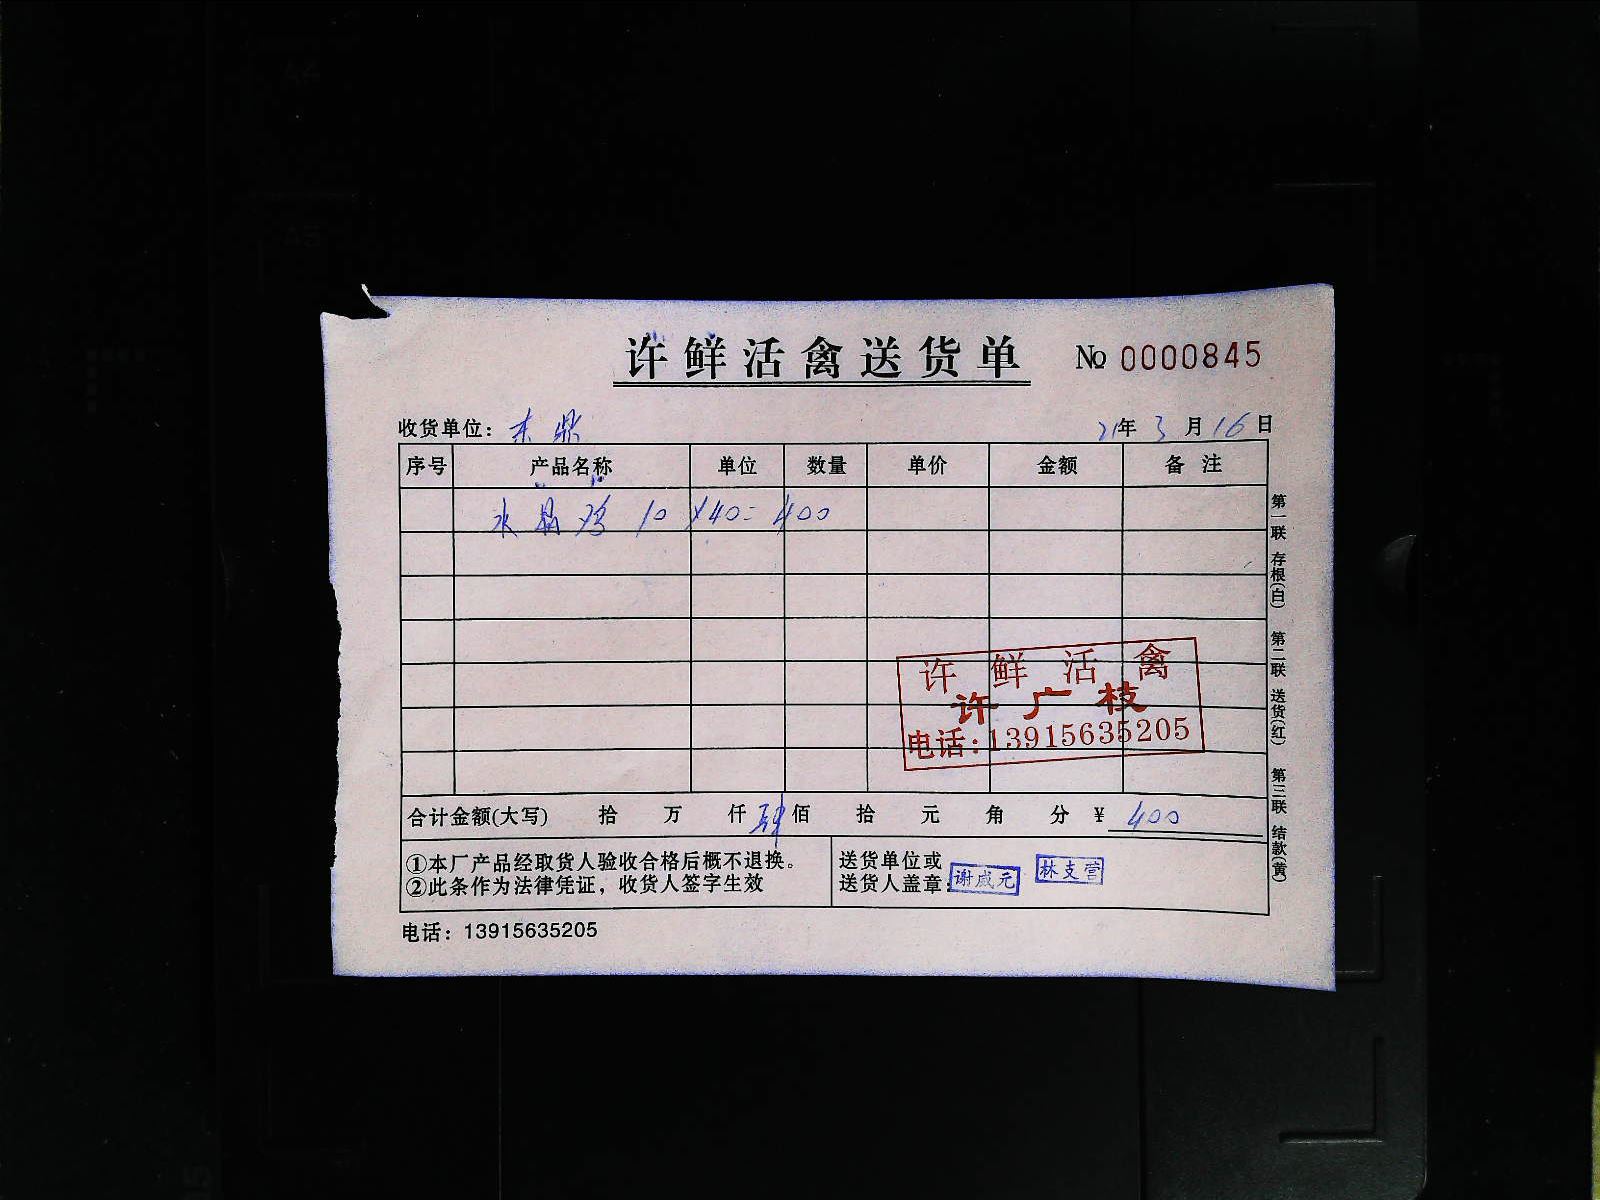 许鲜活禽送货单 № 0000845
收货单位: 东鼎 21年3月16日
序号 产品名称 单位 数量 单价 金额 备注
水晶鸡 10 ×40= 400
许鲜活禽
许广枝
电话:13915635205
合计金额(大写) 拾 万 仟 肆 佰 拾 元 角 分 ¥ 400
①本厂产品经取货人验收合格后概不退换。
②此条作为法律凭证，收货人签字生效
送货单位或
送货人盖章: 谢咸元 林支营
电话: 13915635205
第一联 存根(白) 第二联 送货(红) 第三联 结款(黄)